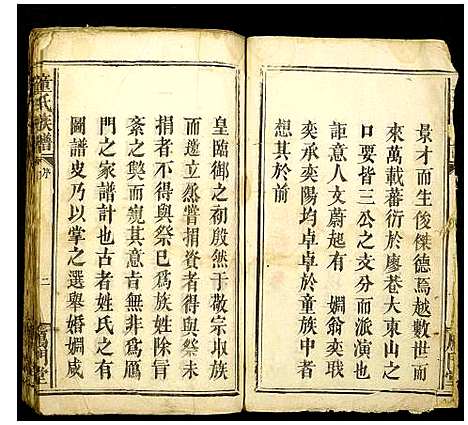 景才而生俊傑德焉越數世而
來萬載蕃衍於廖巷大東山之
口要皆三公之支分而派演也
詎意人文蔚起有 姻翁奕戢
奕承奕陽均卓卓於童族中者
想其於前
皇臨御之初殷然于敬宗収族
而遽立然嘗捐資者得與祭未
捐者不得與祭巳爲族姓除音
紊之獘而䂓其意肯無非爲鴈
門之家譜計也古者姓氏之有
圖譜叟乃以掌之選舉婚姻咸
童氏族譜
序
二
鴈門堂